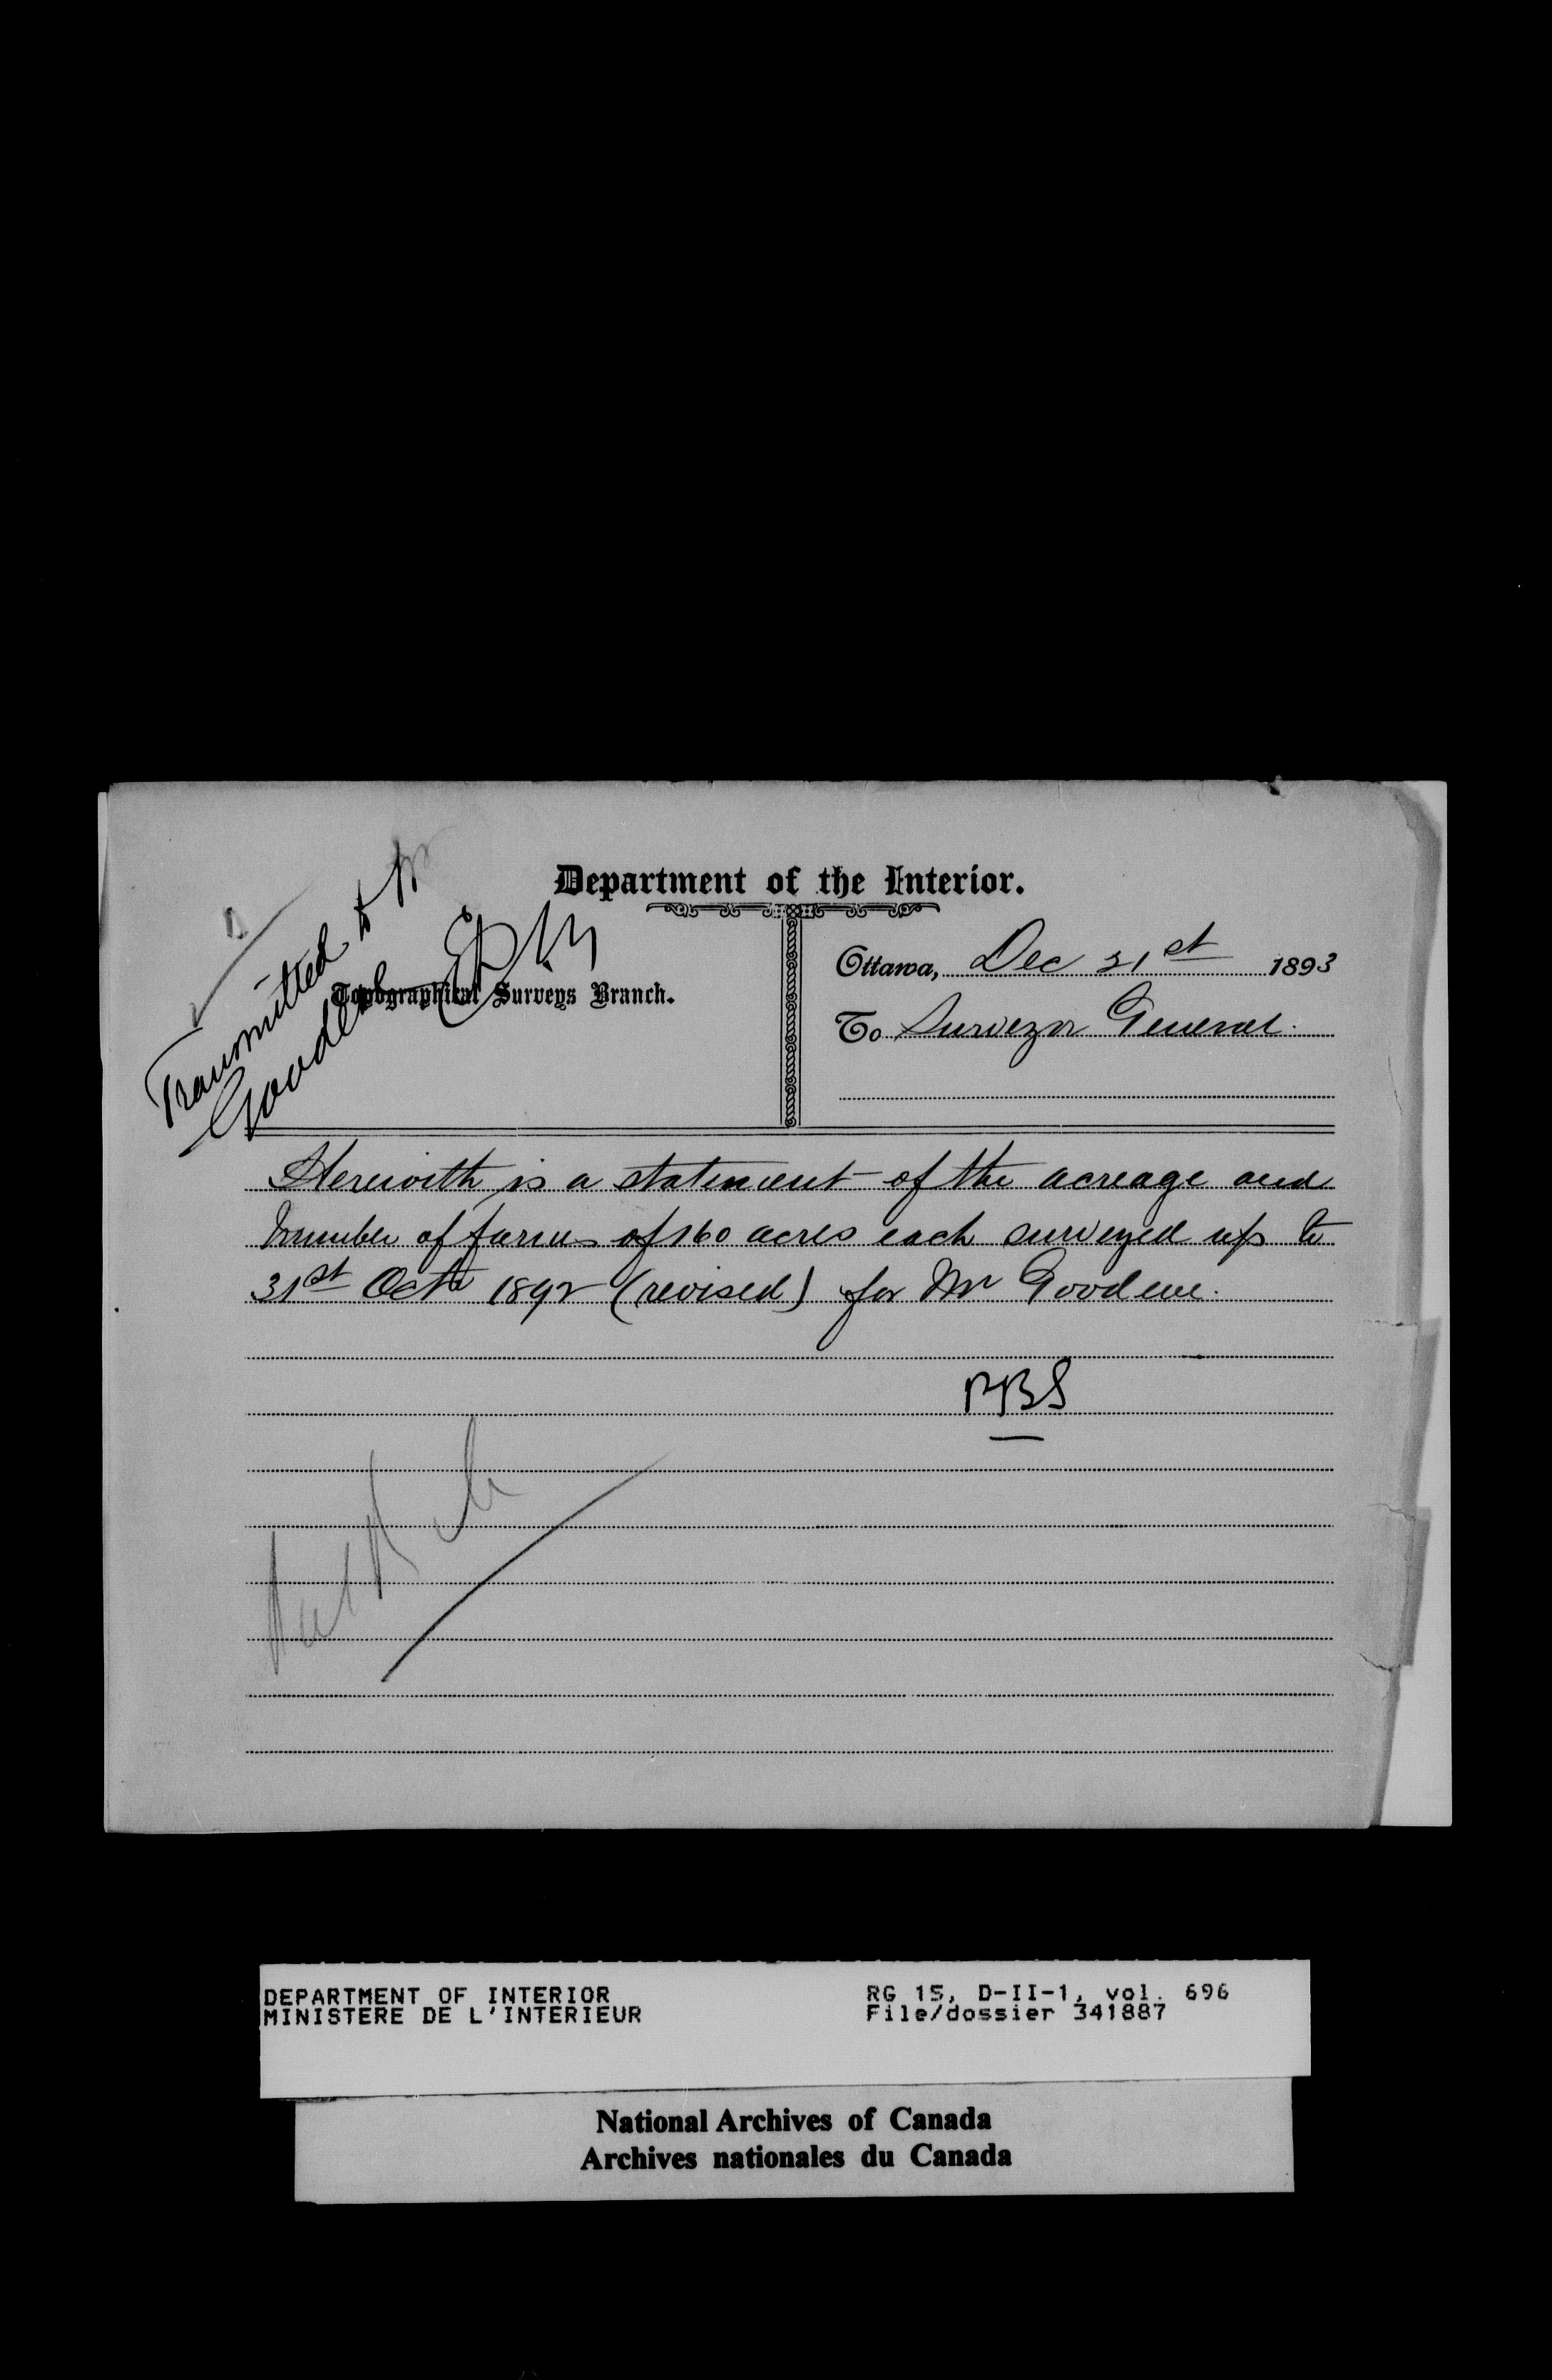 Department of the Interior.
Transmitted to Mr
Goodeve
Topographical Surveys Branch.
Ottawa, Dec 21st 1893
To Surveyor General.
Herewith is a statement of the acreage and
number of farms of 160 acres each surveyed up to
31st Octr 1892 (revised) for Mr Goodeve.
PBS
DEPARTMENT OF INTERIOR
MINISTERE DE L'INTERIEUR
RG 15, D-II-1, vol. 696
File/dossier 341887
National Archives of Canada
Archives nationales du Canada